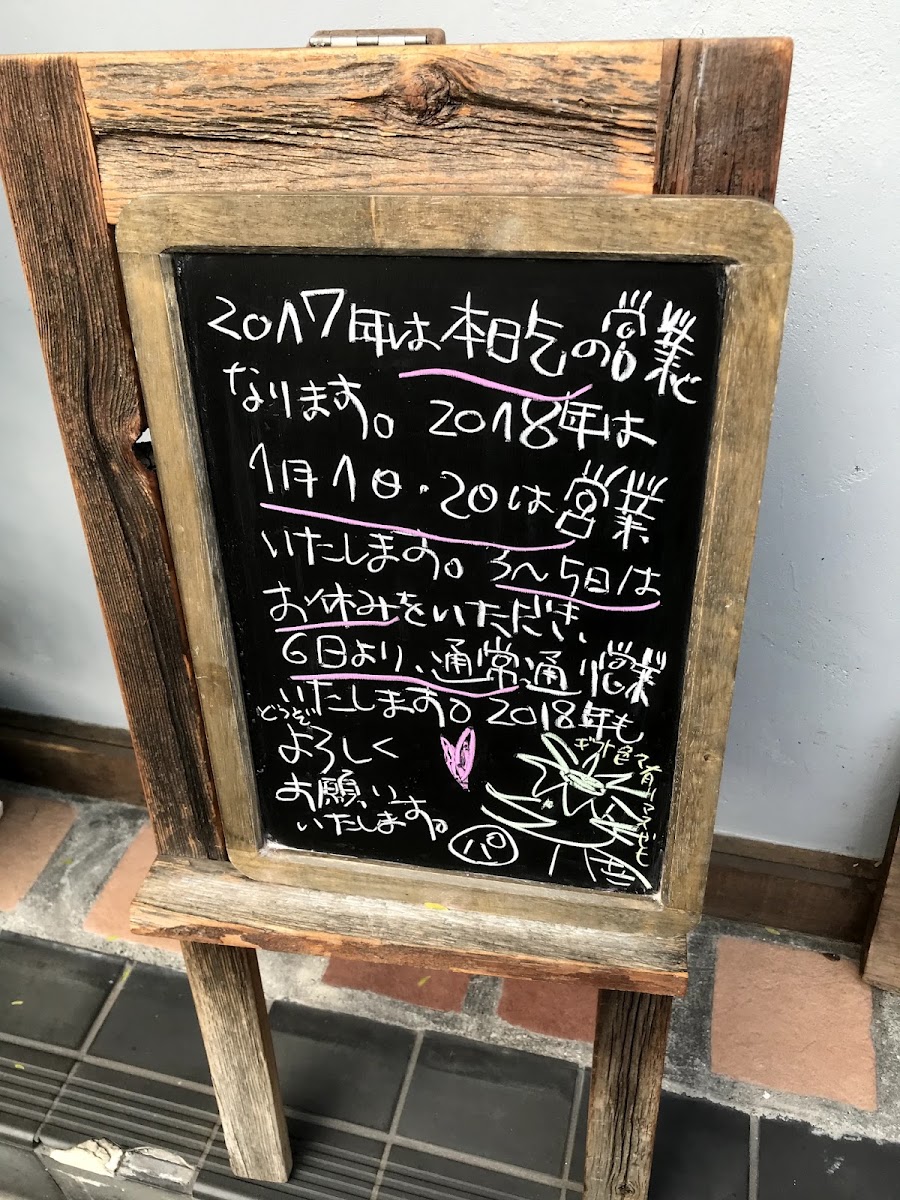 2017年は本日迄の営業と
なります。2018年は
1月1日・2日は営業
いたします。3〜5日は
お休みをいただき、
6日より、通常通り営業
いたします。2018年も
どうぞ
よろしく
お願い
いたします。
パ
ギフト色々有り〼